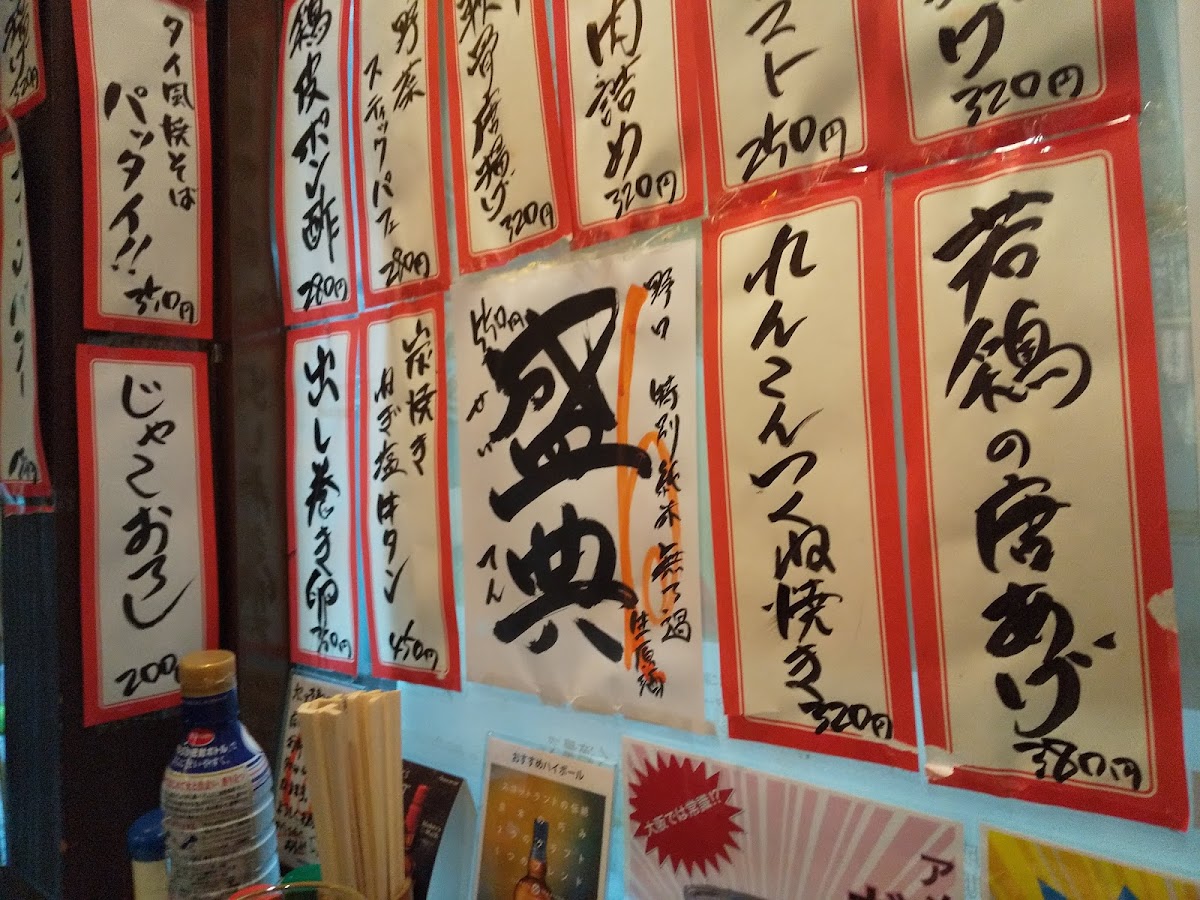 タイ風焼そば
パッタイ!!
350円
じゃこおろし
200円
鶏皮ポン酢
280円
野菜
スティックパフェ
280円
軟骨唐揚げ
320円
肉詰め
320円
スト
250円
げ
320円
出し巻き卵
350円
炭焼き
ねぎ塩牛タン
450円
野口 特別純米 無ろ過
生原酒
盛典
せい
てん
550円
れんこんつくね焼き
320円
若鶏の唐あげ
380円
おすすめハイボール
大阪では常識!?
ア